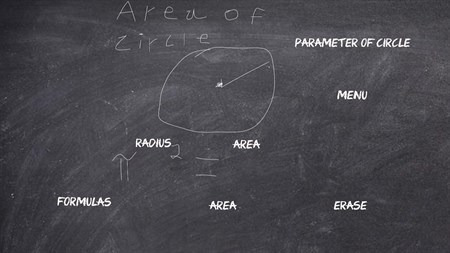 Area of
circle
PARAMETER OF CIRCLE
MENU
RADIUS AREA
π 2 =
FORMULAS AREA ERASE